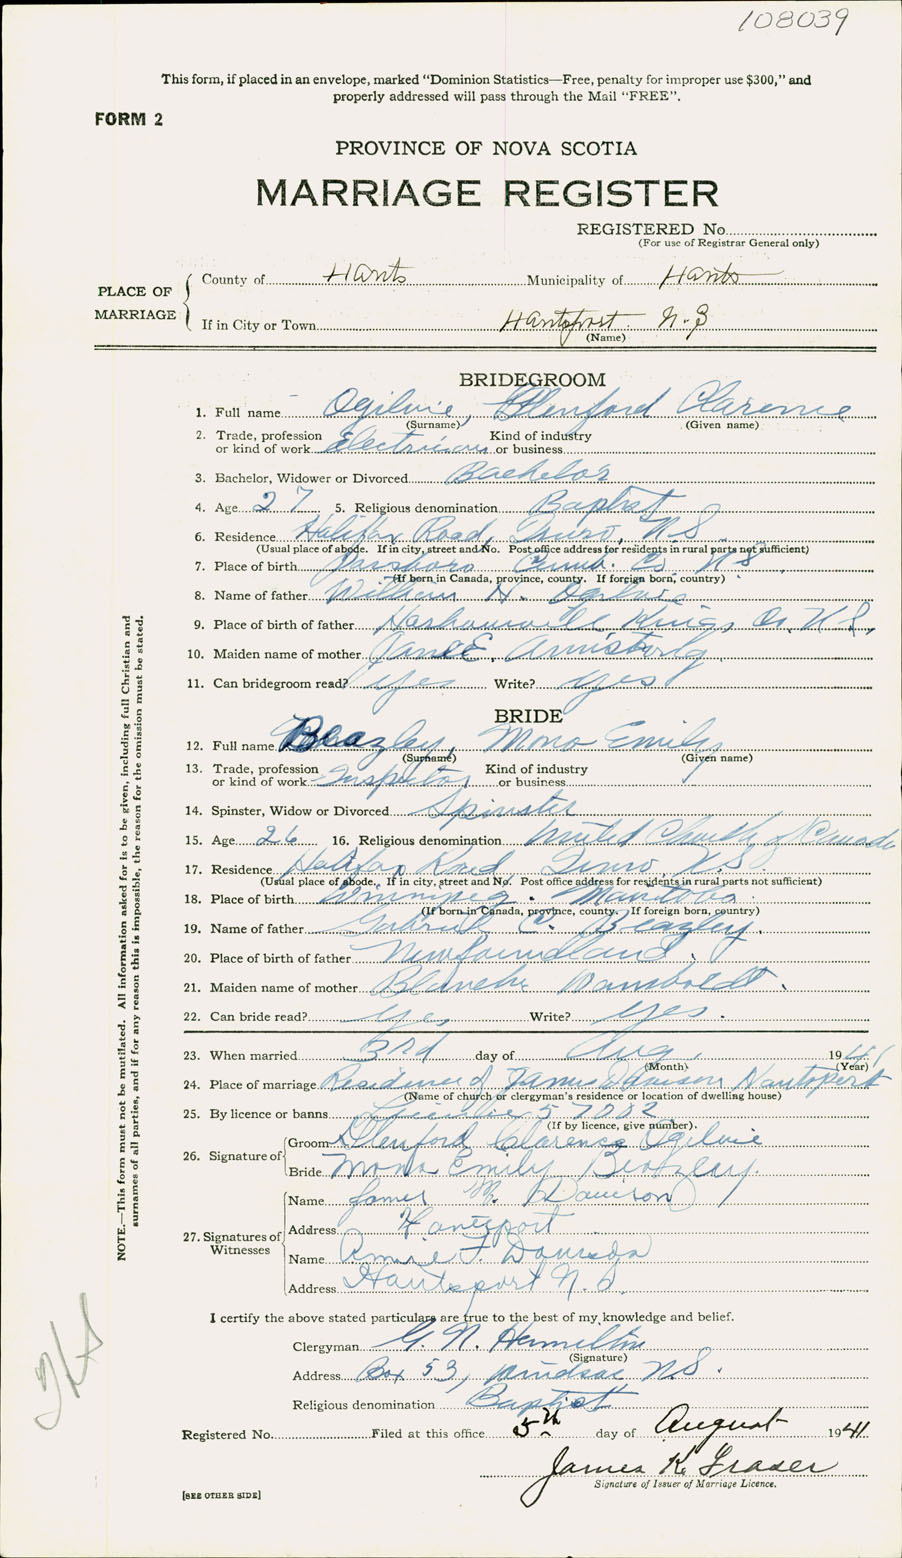 108039
This form, if placed in an envelope, marked "Dominion Statistics—Free, penalty for improper use $300," and
properly addressed will pass through the Mail "FREE".
FORM 2
PROVINCE OF NOVA SCOTIA
MARRIAGE REGISTER
REGISTERED No.
(For use of Registrar General only)
PLACE OF MARRIAGE
County of Hants Municipality of Hants
If in City or Town Hantsport N.S
(Name)
BRIDEGROOM
1. Full name Ogilvie, Glenford Clarence
(Surname) (Given name)
2. Trade, profession or kind of work Electrician Kind of industry or business
3. Bachelor, Widower or Divorced Bachelor
4. Age 27 5. Religious denomination Baptist
6. Residence Halifax Road, Truro, N.S.
(Usual place of abode. If in city, street and No. Post office address for residents in rural parts not sufficient)
7. Place of birth Parsboro Cumb. Co. N.S.
(If born in Canada, province, county. If foreign born, country)
8. Name of father William H. Ogilvie
9. Place of birth of father Kings Co. N.S.,
10. Maiden name of mother Jane E. Armstrong
11. Can bridegroom read? yes Write? yes
BRIDE
12. Full name Beazley, Mona Emily
(Surname) (Given name)
13. Trade, profession or kind of work Inspector Kind of industry or business
14. Spinster, Widow or Divorced Spinster
15. Age 26 16. Religious denomination United Church of Canada
17. Residence Halifax Road, Truro, N.S.
(Usual place of abode. If in city, street and No. Post office address for residents in rural parts not sufficient)
18. Place of birth Winnipeg. Manitoba.
(If born in Canada, province, county. If foreign born, country)
19. Name of father C. Beazley.
20. Place of birth of father Newfoundland.
21. Maiden name of mother Blanche Wamboldt.
22. Can bride read? yes Write? yes.
23. When married 3rd day of Aug. 1941
(Month) (Year)
24. Place of marriage Residence of James Davison Hantsport
(Name of church or clergyman's residence or location of dwelling house)
25. By licence or banns License 57082
(If by licence, give number).
26. Signature of
Groom Glenford Clarence Ogilvie
Bride Mona Emily Beazley.
27. Signatures of Witnesses
Name James M. Davison
Address Hantsport
Name Annie F. Davison
Address Hantsport N.S.
I certify the above stated particulars are true to the best of my knowledge and belief.
Clergyman G. N. Hamilton
(Signature)
Address Box 53, Windsor N.S.
Religious denomination Baptist
Registered No. Filed at this office 5th day of August 1941
James K. Fraser
Signature of Issuer of Marriage Licence.
[SEE OTHER SIDE]
NOTE.—This form must not be mutilated. All information asked for is to be given, including full Christian and
surnames of all parties, and if for any reason this is impossible, the reason for the omission must be stated.